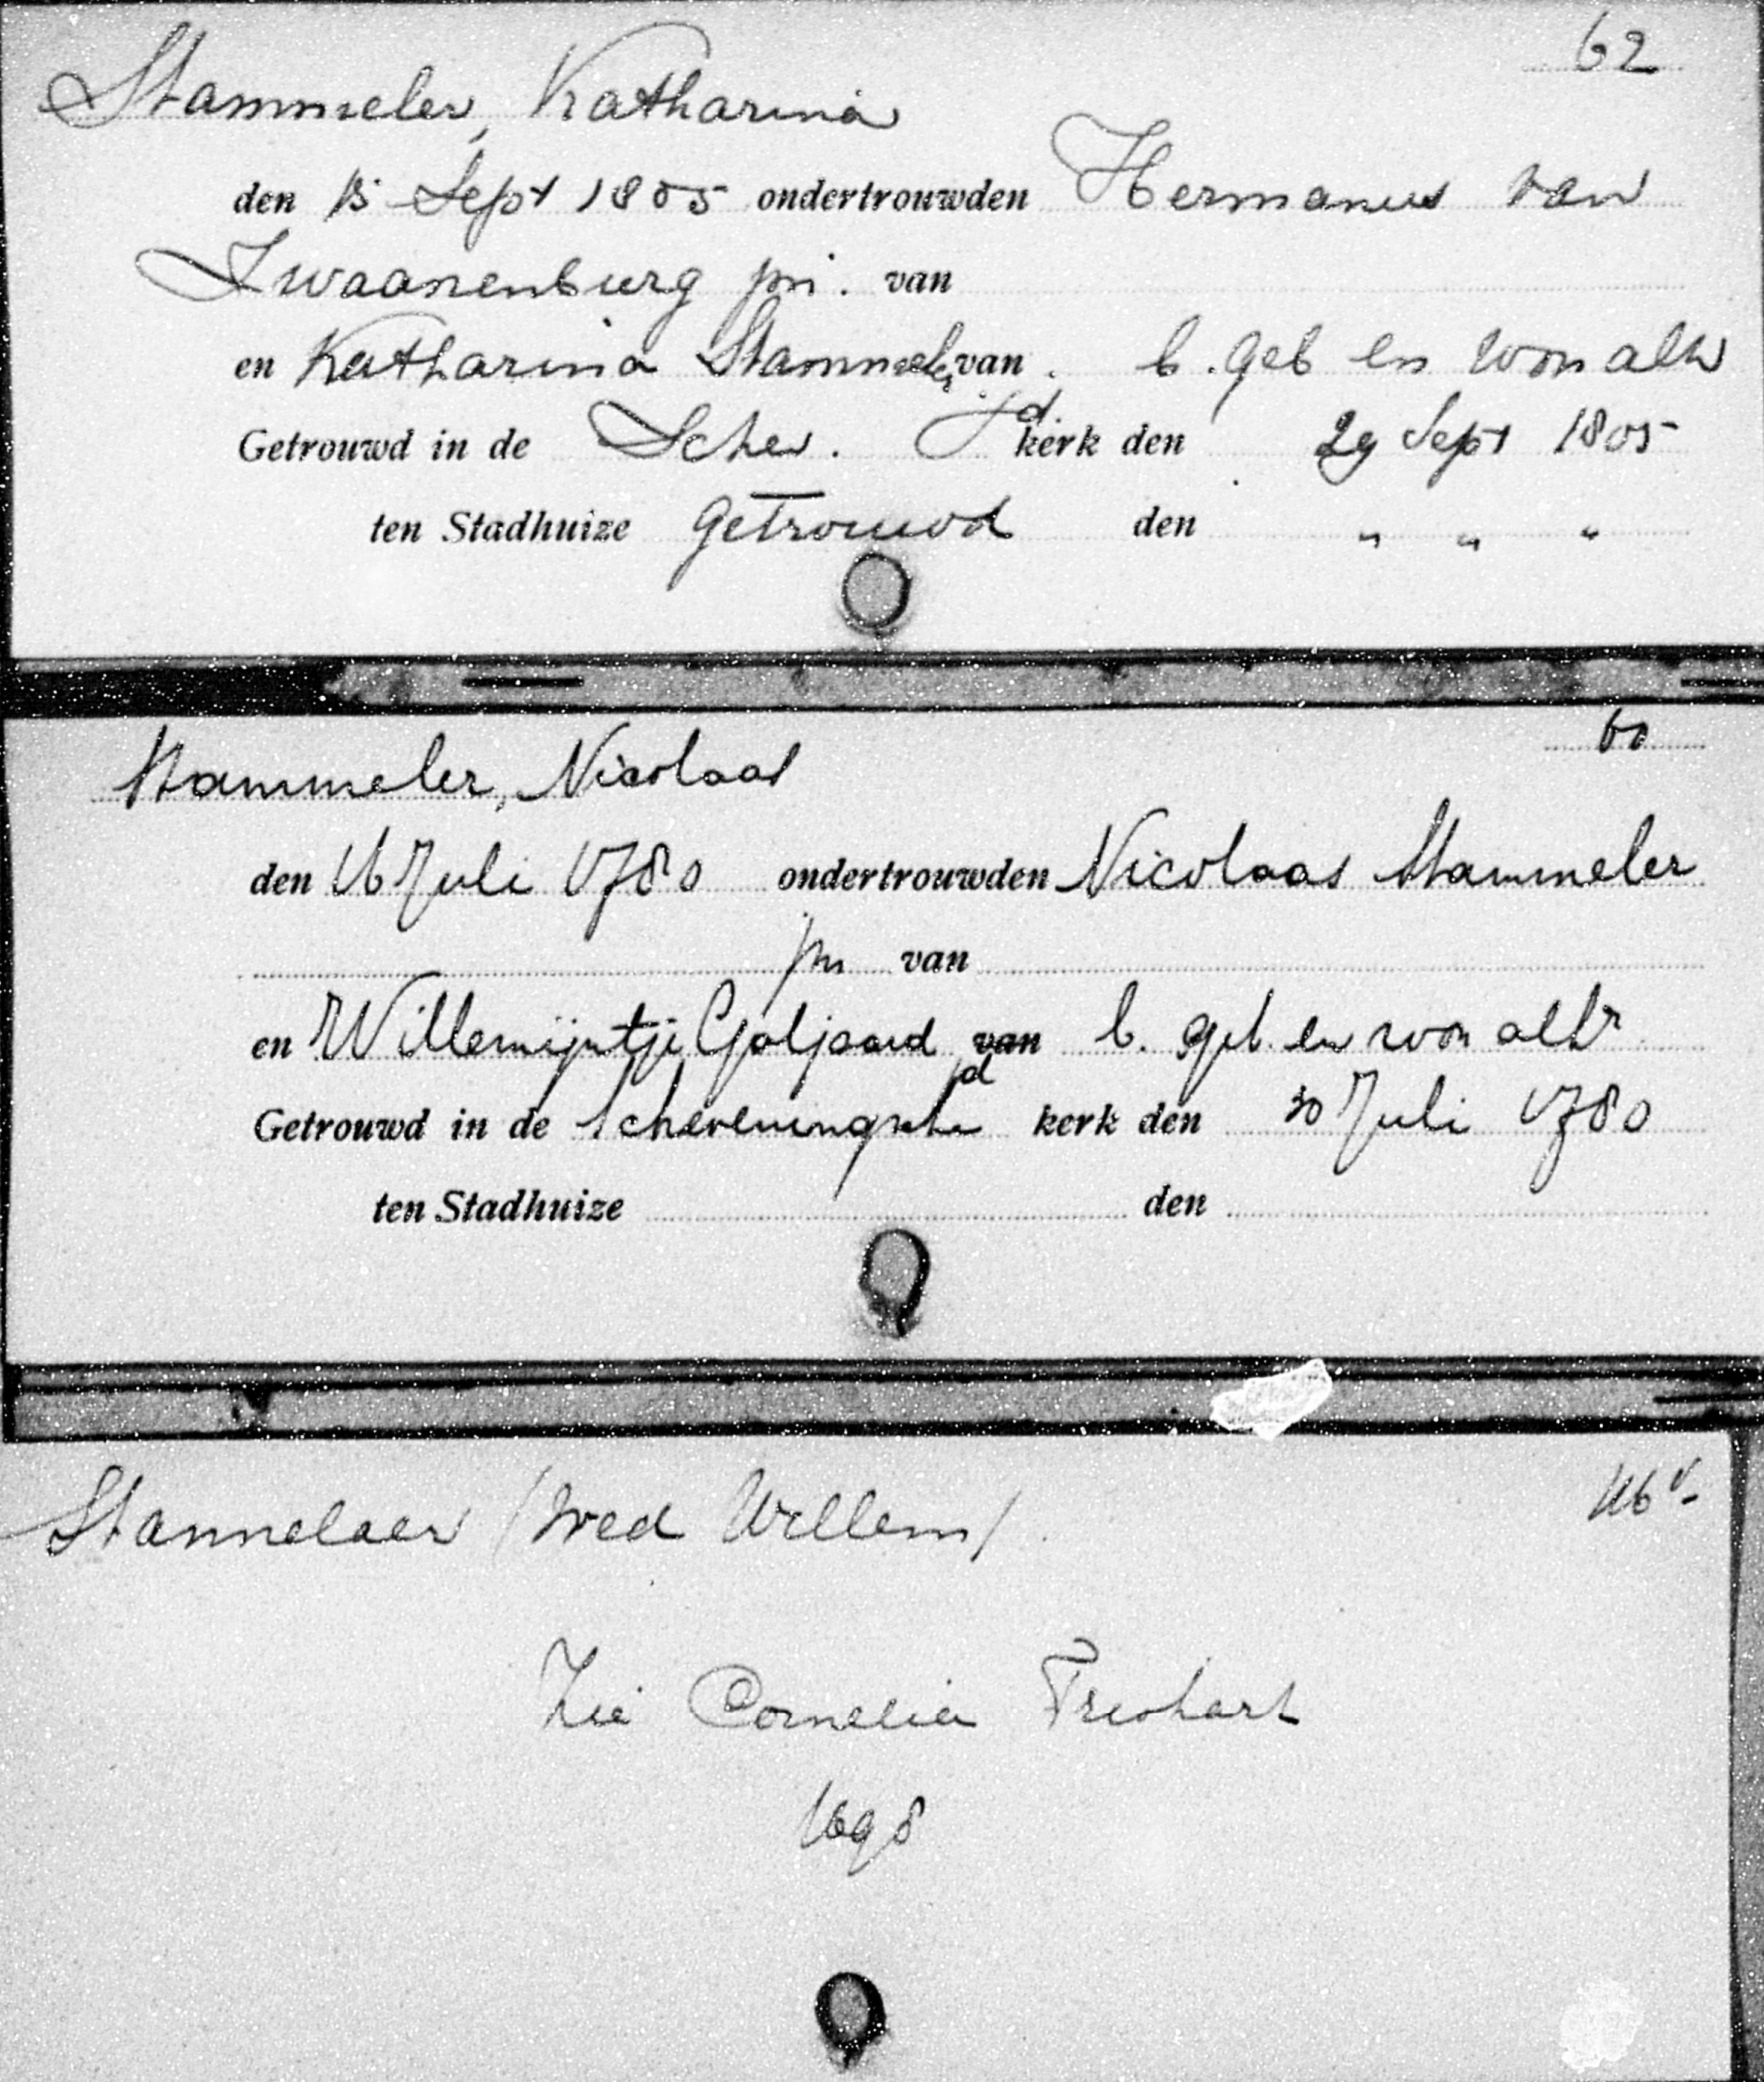 62
Stammeler, Katharina
den 15 Sept 1805 ondertrouwden Hermanus van
Zwaanenburg jm. van
en Katharina Stammeler van . b. geb en won alh
jd
Getrouwd in de Schev. kerk den 29 Sept 1805
ten Stadhuize Getrouwd den " " "
60
Stammeler, Nicolaas
den 16 Juli 1780 ondertrouwden Nicolaas Stammeler
jm van
en Willemijntje Goljaard van b. geb. en won alhr
jd
Getrouwd in de Scheveningsche kerk den 30 Juli 1780
ten Stadhuize den
116v
Stannelaer (wed Willem)
Zie Cornelia
1698